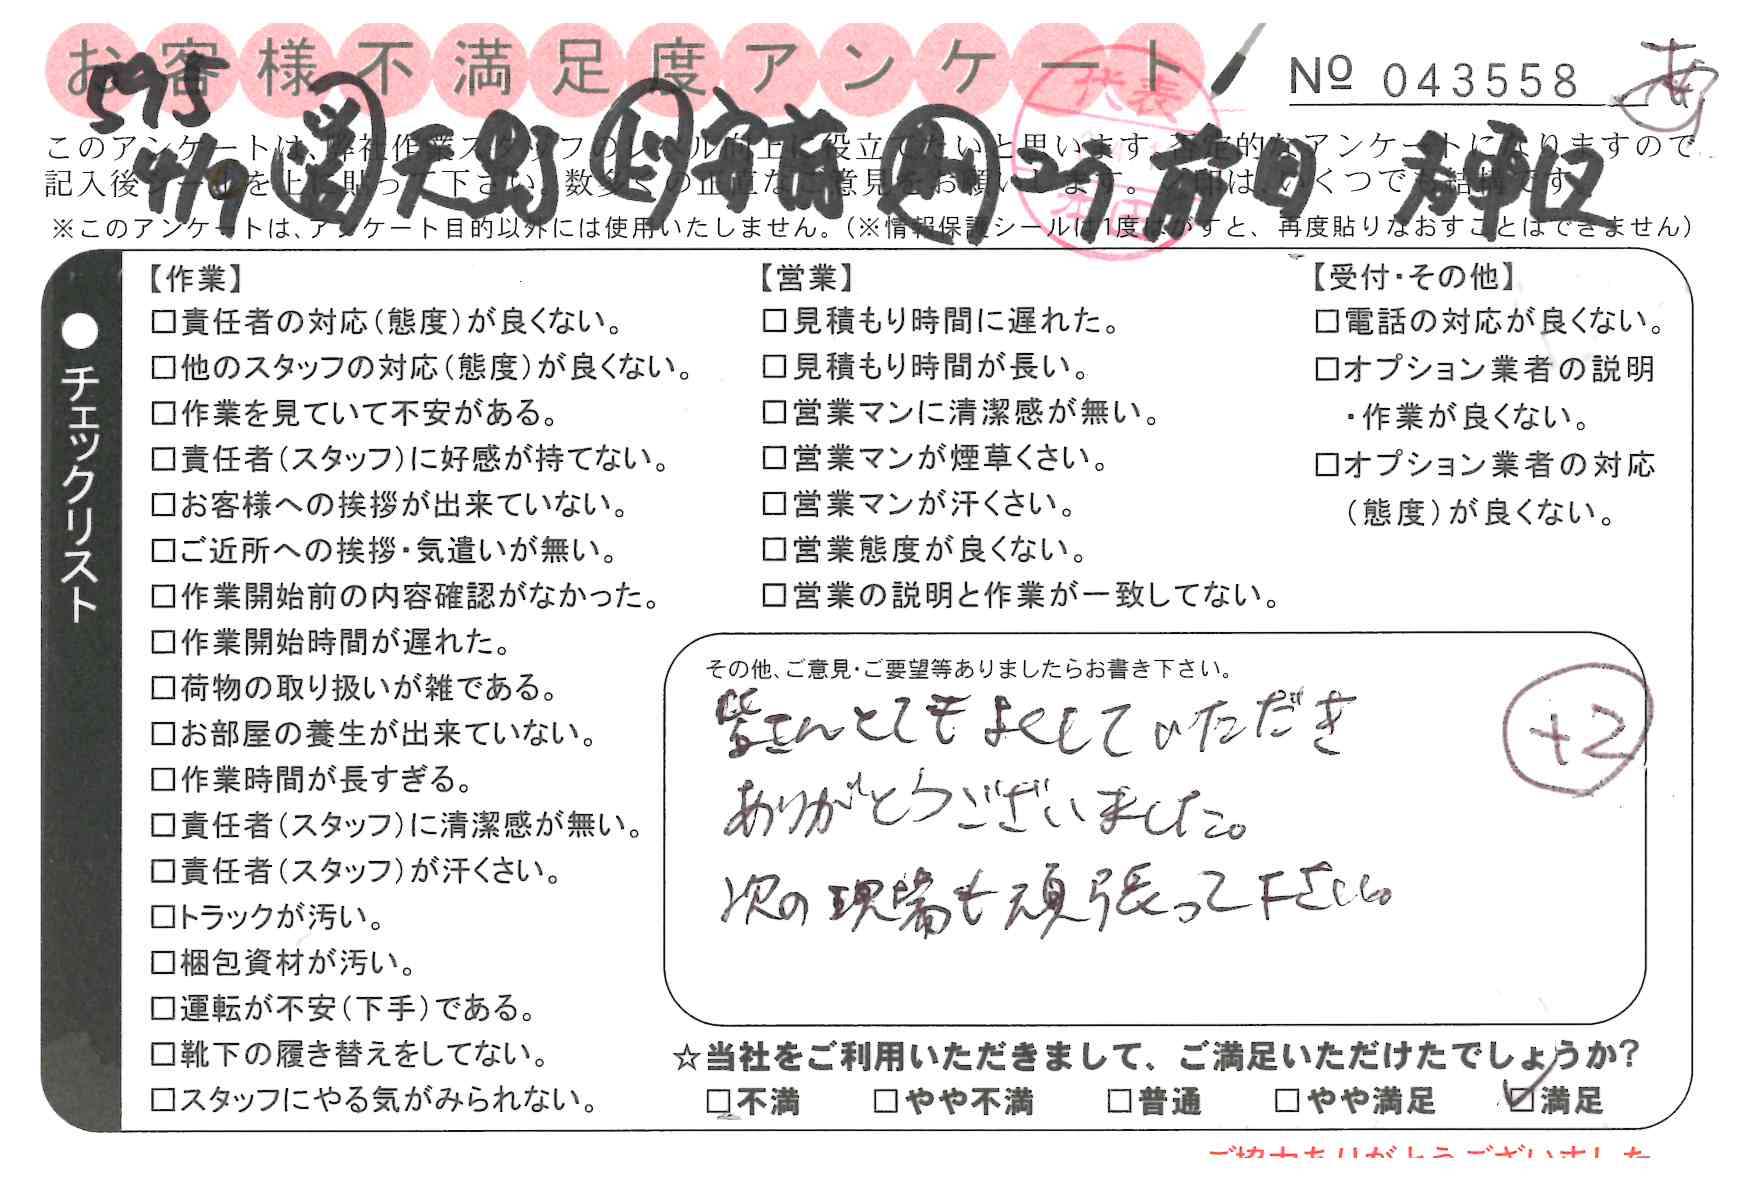 お客様不満足度アンケート
№ 043558
あ
595
4/9 天野 市前 コ斗 前田 港区
このアンケートは、弊社作業スタッフのレベル向上に役立てたいと思います。否定的なアンケートになりますので
記入後シールを上に貼って下さい。数多くの正直なご意見をお願いします。✓印は、いくつでも結構です。
※このアンケートは、アンケート目的以外には使用いたしません。(※情報保護シールは1度はがすと、再度貼りなおすことはできません)
代表
本田
●チェックリスト
【作業】
□責任者の対応(態度)が良くない。
□他のスタッフの対応(態度)が良くない。
□作業を見ていて不安がある。
□責任者(スタッフ)に好感が持てない。
□お客様への挨拶が出来ていない。
□ご近所への挨拶・気遣いが無い。
□作業開始前の内容確認がなかった。
□作業開始時間が遅れた。
□荷物の取り扱いが雑である。
□お部屋の養生が出来ていない。
□作業時間が長すぎる。
□責任者(スタッフ)に清潔感が無い。
□責任者(スタッフ)が汗くさい。
□トラックが汚い。
□梱包資材が汚い。
□運転が不安(下手)である。
□靴下の履き替えをしてない。
□スタッフにやる気がみられない。
【営業】
□見積もり時間に遅れた。
□見積もり時間が長い。
□営業マンに清潔感が無い。
□営業マンが煙草くさい。
□営業マンが汗くさい。
□営業態度が良くない。
□営業の説明と作業が一致してない。
【受付・その他】
□電話の対応が良くない。
□オプション業者の説明
・作業が良くない。
□オプション業者の対応
(態度)が良くない。
その他、ご意見・ご要望等ありましたらお書き下さい。
皆さんとてもよくしていただき
ありがとうございました。
次の現場も頑張って下さい。
+2
☆当社をご利用いただきまして、ご満足いただけたでしょうか?
□不満 □やや不満 □普通 □やや満足 ☑満足
ご協力ありがとうございました